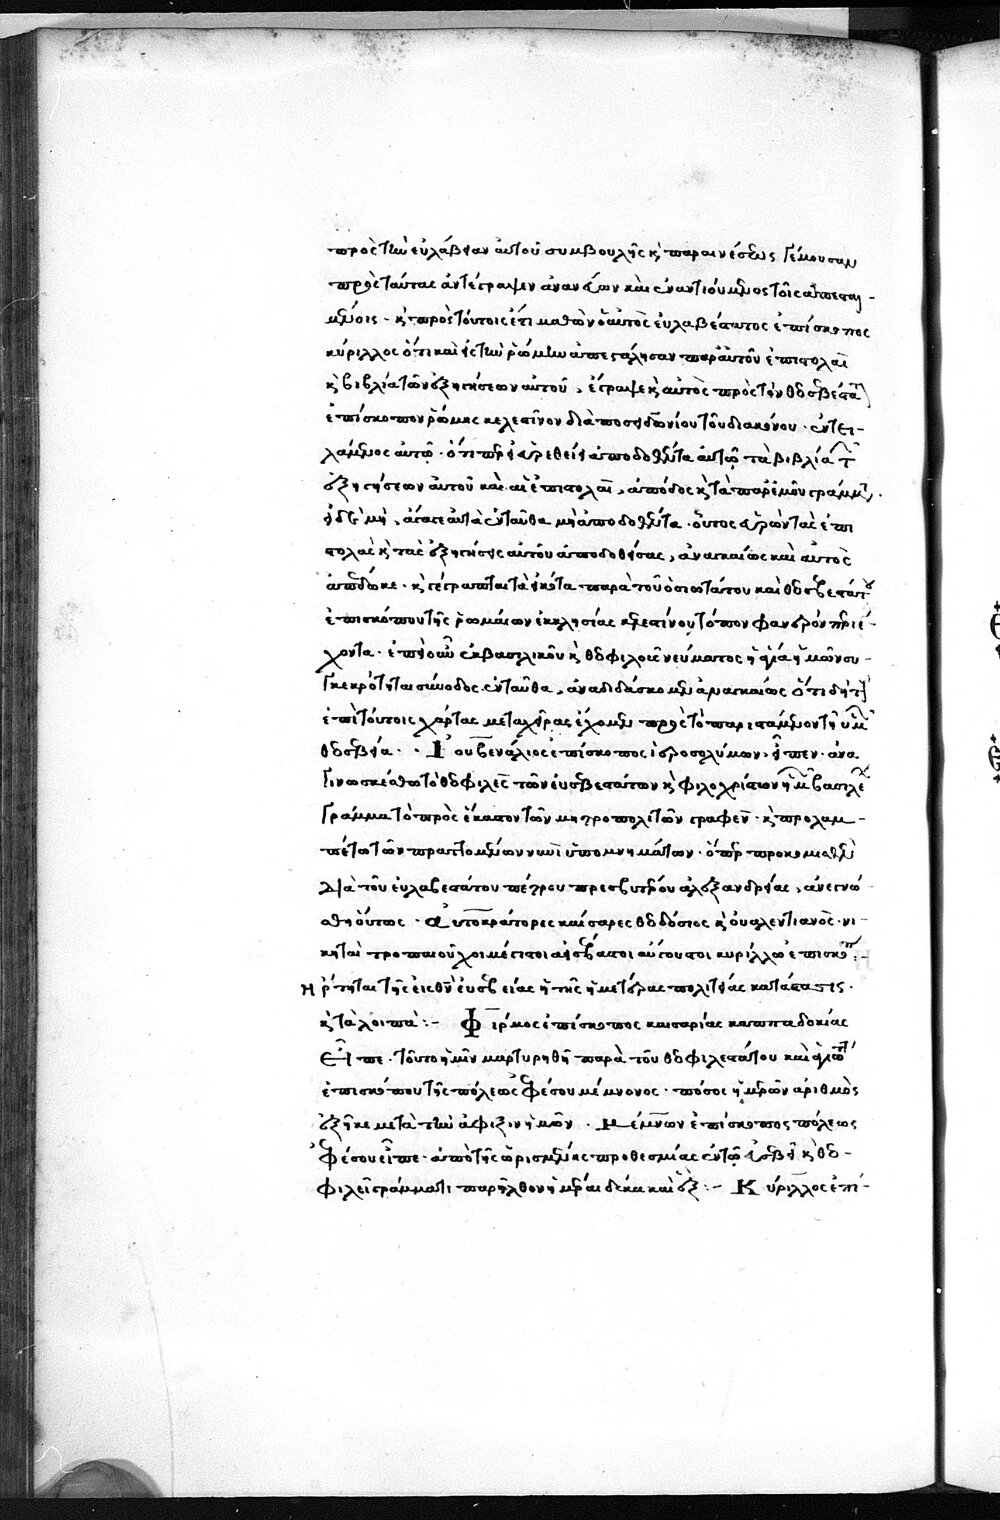 πρὸς τὴν εὐλάβειαν αὐτοῦ συμβουλῆς κ̀ παραινέσεως γέμουσαν
πρὸς ταύτας ἀντέγραψεν ἀνανεύων καὶ ἐναντιούμενος τοῖς ἀπεσταλ-
μένοις · κ̀ πρὸς τούτοις ἔτι μαθὼν ὁ αὐτὸς εὐλαβέστατος ἐπίσκοπος
κύριλλος ὅτι καὶ εἰς τὴν ῥώμην ἀπεστάλησαν παρ' αὐτοῦ ἐπιστολαὶ
κ̀ βιβλία τῶν ἐξηγήσεων αὐτοῦ, ἔγραψε κ̀ αὐτὸς πρὸς τὸν θεοσεβέστατον
ἐπίσκοπον ῥώμης κελεστῖνον διὰ ποσειδωνίου τοῦ διακόνου · ἐντει-
λάμενος αὐτῷ · ὅτι περ εἰ εὑρεθείη ἀποδοθέντα αὐτῷ τὰ βιβλία τῶν
ἐξηγήσεων αὐτοῦ καὶ αἱ ἐπιστολαὶ, ἀπόδος κ̀ τὰ παρ' ἐμοῦ γράμματα.
εἰ δὲ μὴ, ἄγαγε αὐτὰ ἐνταῦθα μὴ ἀποδοθέντα · οὗτος εὑρὼν τὰς ἐπι
στολὰς κ̀ τὰς ἐξηγήσεις αὐτοῦ ἀποδοθείσας, ἀναγκαίως καὶ αὐτὸς
ἀπέδωκε · κ̀ γέγραπται τὰ εἰκότα παρὰ τοῦ ὁσιωτάτου καὶ θεοσεβεστάτου
ἐπισκόπου τῆς ῥωμαίων ἐκκλησίας κελεστίνου τύπον φανερὸν περιέ-
χοντα · ἐπεὶ οὖν ἐκ βασιλικοῦ κ̀ θεοφιλοῦς νεύματος ἡ ἁγία ἡμῶν συ-
γκεκρότηται σύνοδος ἐνταῦθα, ἀναδιδάσκομεν ἀναγκαίως ὅτι δὴ τοὺς
ἐπὶ τούτοις χάρτας μετὰ χεῖρας ἔχομεν πρὸς τὸ παριστάμενον τῇ ὑμῶν
θεοσεβείᾳ · · Ἰουβενάλιος ἐπίσκοπος ἱεροσολύμων, εἶπεν · ἀνα
γινωσκέσθω τὸ θεοφιλὲς τῶν εὐσεβεστάτων κ̀ φιλοχρίστων ἡμῶν βασιλέων
γράμμα τὸ πρὸς ἕκαστον τῶν μητροπολιτῶν γραφὲν · κ̀ προλαμ-
πέτω τῶν πραττομένων νυνὶ ὑπομνημάτων · ὅπερ προκομισθὲν
διὰ τοῦ εὐλαβεστάτου πέτρου πρεσβυτέρου ἀλεξανδρείας, ἀνεγνώ
σθη οὕτως · Αὐτοκράτορες καίσαρες θεοδόσιος κ̀ οὐαλεντιανὸς · νι-
κηταὶ τροπαιοῦχοι μέγιστοι ἀεισέβαστοι αὔγουστοι κυρίλλῳ ἐπισκόπῳ :-
Ἤρτηται τῆς εἰς θεὸν εὐσεβείας ἡ τῆς ἡμετέρας πολιτείας κατάστασις ·
κ̀ τὰ λοιπὰ :- Φίρμος ἐπίσκοπος καισαρίας καππαδοκίας
Εἶπε · τοῦτο ἡμῖν μαρτυρηθῇ παρὰ τοῦ θεοφιλεστάτου καὶ ἁγιωτάτου
ἐπισκόπου τῆς πόλεως ἐφέσου μέμνονος · πόσος ἡμερῶν ἀριθμὸς
ἐξῆκε μετὰ τὴν ἄφιξιν ἡμῶν · Μέμνων ἐπίσκοπος πόλεως
Ἐφέσου εἶπε · ἀπὸ τῆς ὡρισμένης προθεσμίας ἐν τῷ εὐσεβεῖ κ̀ θεο-
φιλεῖ γράμματι παρῆλθον ἡμέραι δέκα καὶ ἓξ :- Κύριλλος ἐπί-